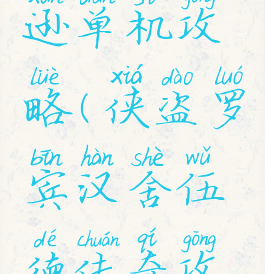 xùn dān jī gōng
逊单机攻
lüè xiá dào luó
略(侠盗罗
bīn hàn shè wǔ
宾汉舍伍
dé chuán qí gōng
德传奇攻